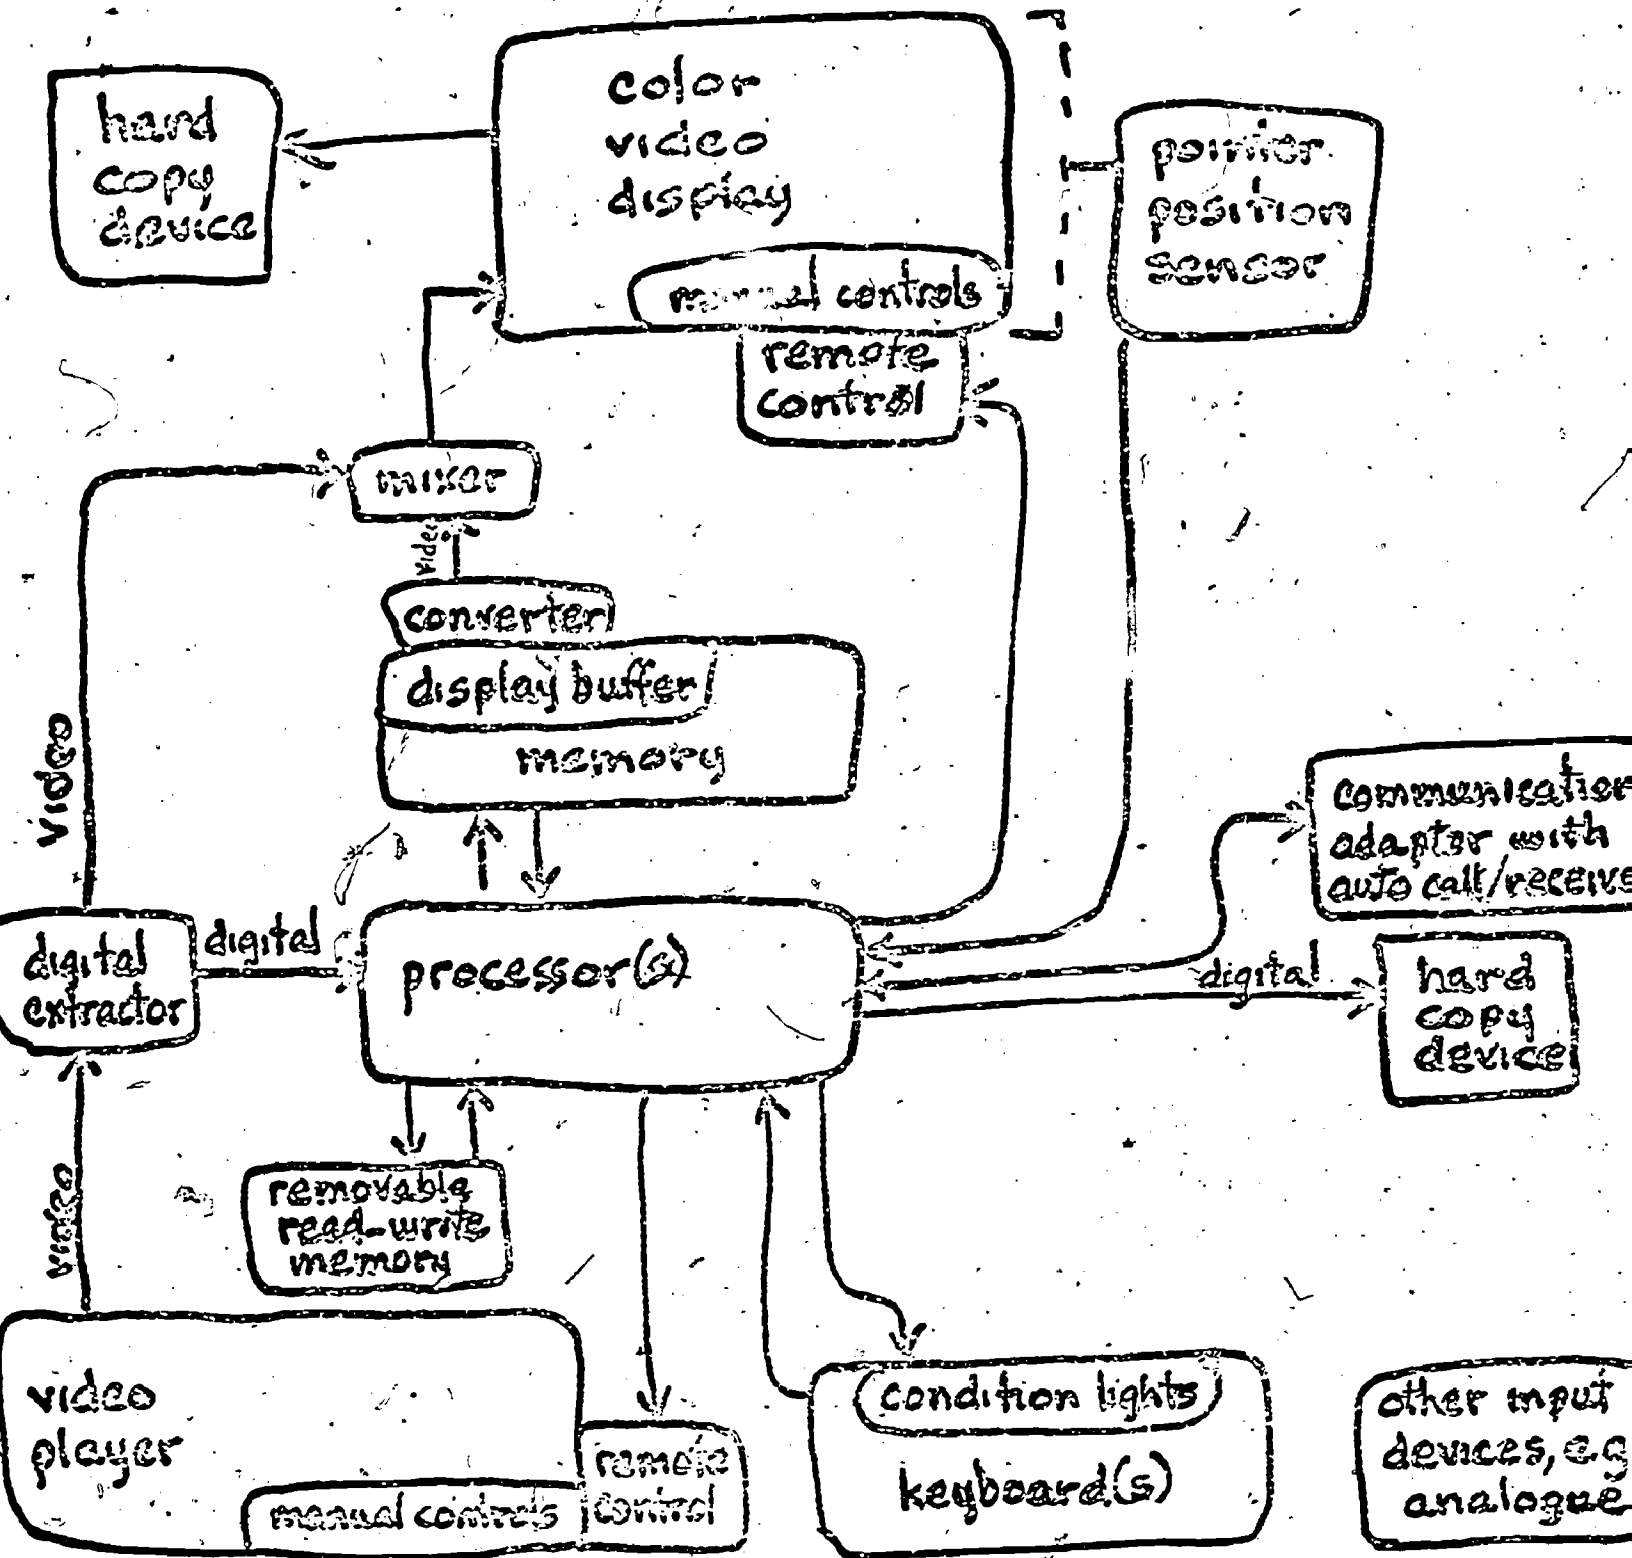 color
video
display
manual controls
remote
control
hard
copy
device
pointer
position
sensor
mixer
video
converter
display buffer
memory
video
communication
adapter with
auto call/receive
digital
extractor
digital
processor(s)
digital
hard
copy
device
removable
read-write
memory
video
video
player
manual controls
remote
control
condition lights
keyboard(s)
other input
devices, e.g
analogue